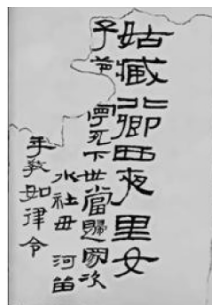 姑臧北鄉西夜里女
子寧死下世當歸冢次
水社毋 河留
教如律令